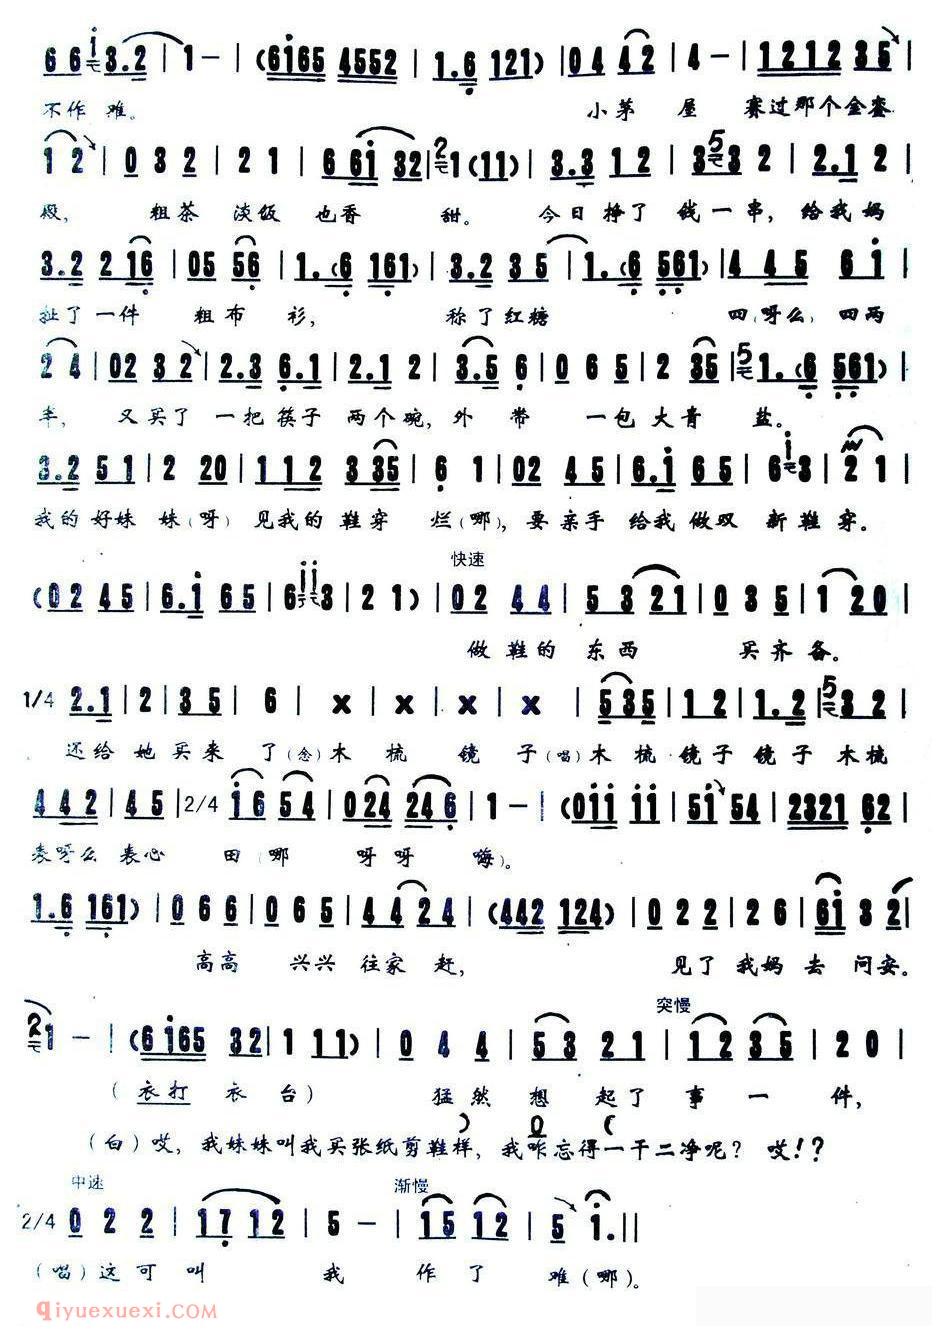 6 6 3.2 | 1 – | (6i65 4552 | 1.6 121) | 04 42 | 4 – | 1212 35 |
不作难。 小茅屋 赛过那个金銮
1 2 | 0 3 2 | 2 1 | 6 6i 32 | 1 (11) | 3.3 1 2 | 3 3 2 | 2.1 2 |
殿, 粗茶 淡饭 也香 甜。 今日 挣了 钱一串, 给我妈
3.2 2 16 | 05 56 | 1.(6 161) | 3.2 35 | 1.(6 561) | 4 4 5 6 i |
扯了一件 粗布 衫, 称了红糖 四(呀么)四两
2 4 | 02 3 2 | 2.3 6.1 | 2.1 2 | 3.5 6 | 0 6 5 | 2 35 | 1.(6 561) |
半, 又买了 一把筷子 两个碗, 外带 一包大青 盐。
3.2 5 1 | 2 20 | 112 3 35 | 6 1 | 02 45 | 6.i 65 | 6 3 | 2 1 |
我的好妹 妹(呀)见我的鞋穿 烂(哪), 要亲手 给我做双 新鞋穿。
快速
(02 45 | 6.i 65 | 6 3 | 2 1) | 02 44 | 5 3 21 | 0 3 5 | 1 20 |
做鞋的 东西 买齐备。
1/4 2.1 | 2 | 3 5 | 6 | x | x | x | x | 535 | 1 2 | 1.2 | 3 2 |
还给她买来 了(念)木梳 镜子(唱)木梳 镜子 镜子 木梳
442 | 45 | 2/4 i6 54 | 024 246 | 1 – | (0ii ii | 5i 54 | 2321 62 |
表呀么表心 田(哪 呀呀 嗨)。
1.6 161) | 0 6 6 | 0 6 5 | 4 4 2 4 | (442 124) | 0 2 2 | 2 6 | 6i 3 2 |
高高 兴兴 往家 赶, 见了 我妈 去 问安。
突慢
1 – | (6i65 32 | 1 11) | 0 4 4 | 53 21 | 12 35 | 2 0 |
(衣打 衣 台) 猛然 想 起了 事 一 件,
(白)哎, 我妹妹叫我买张纸剪鞋样, 我咋忘得一干二净呢? 哎!?
中速 渐慢
2/4 0 2 2 | 17 12 | 5 – | 15 12 | 5 i. ||
(唱)这可叫 我 作了 难(哪)。
qiyuexuexi.com